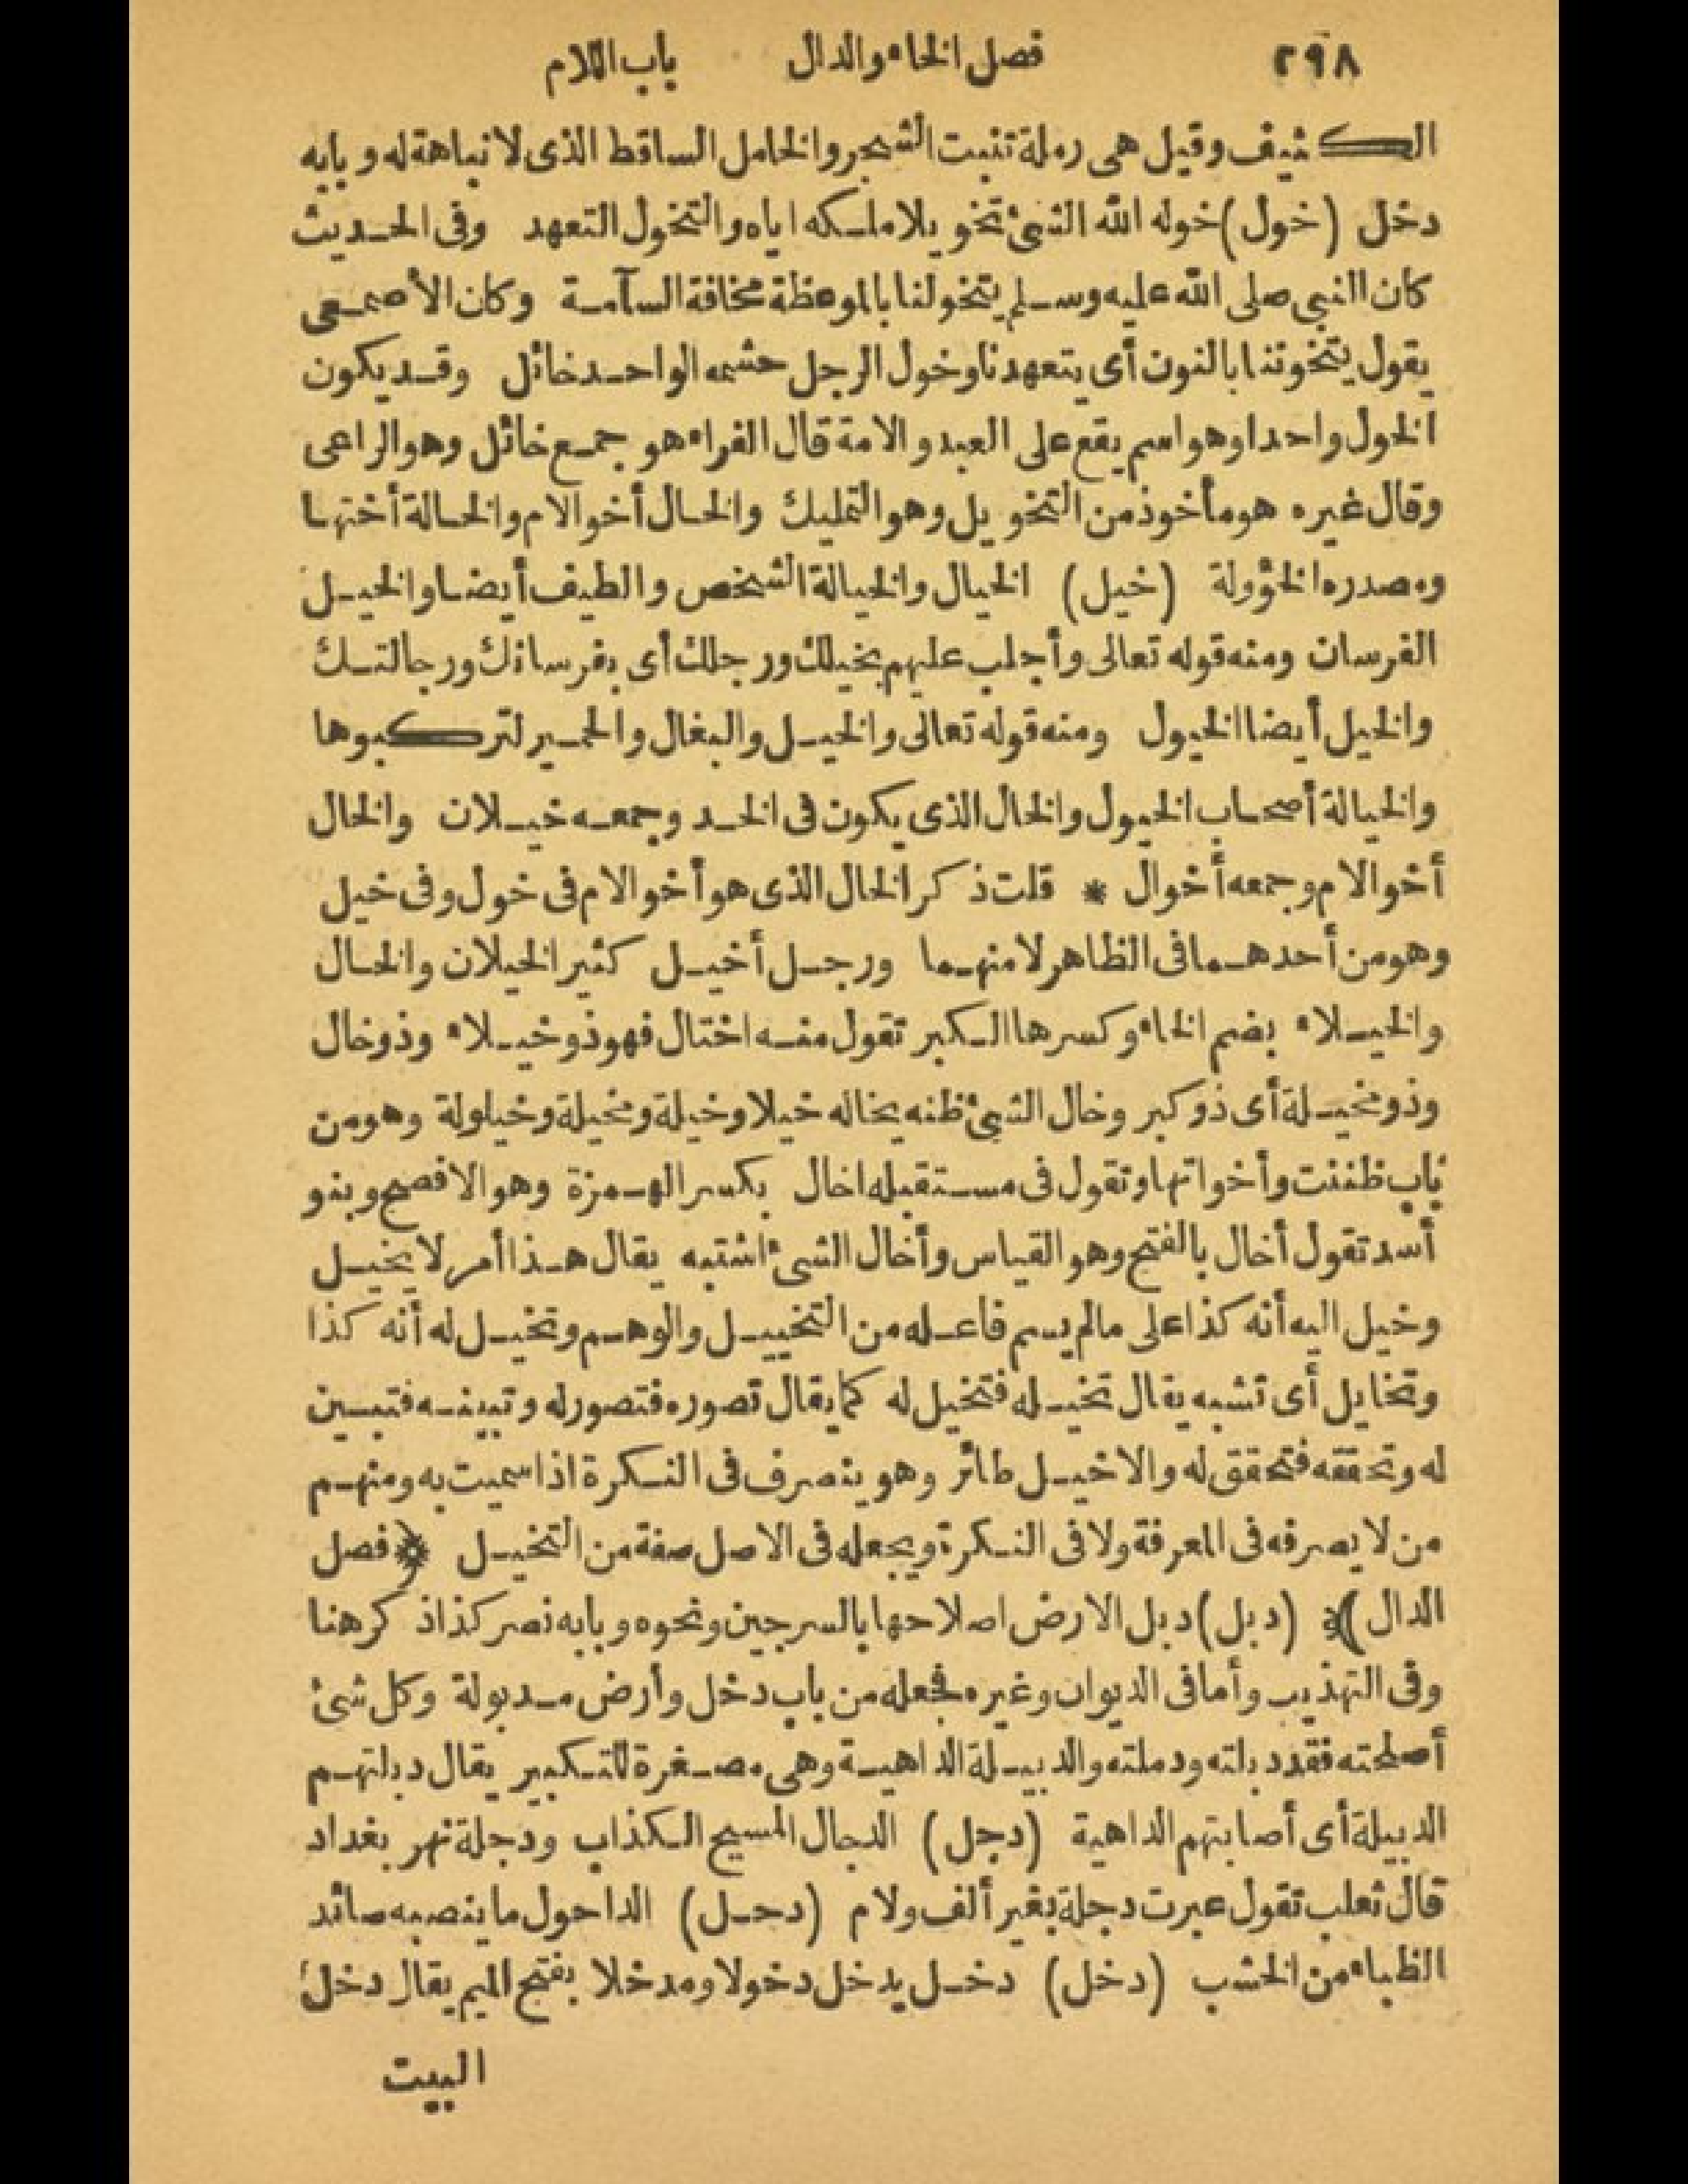 ٢٩٨ فصل الخاء والدال باب اللام
الكثيف وقيل هى رملة تنبت الشجر والخامل الساقط الذى لا نباهة له وبابه
دخل (خول) خوله الله الشئ تخويلا ملكه اياه والتخول التعهد وفى الحديث
كان النبي صلى الله عليه وسلم يتخولنا بالموعظة مخافة السآمة وكان الأصمعى
يقول يتخوننا بالنون أى يتعهدنا وخول الرجل حشمه الواحد خائل وقد يكون
الخول واحدا وهو اسم يقع على العبد والامة قال الفراء هو جمع خائل وهو الراعى
وقال غيره هو مأخوذ من التخويل وهو التمليك والخال أخو الام والخالة أختها
ومصدره الخؤولة (خيل) الخيال والخيالة الشخص والطيف أيضا والخيل
الفرسان ومنه قوله تعالى وأجلب عليهم بخيلك ورجلك أى بفرسانك ورجالتك
والخيل أيضا الخيول ومنه قوله تعالى والخيل والبغال والحمير لتركبوها
والخيالة أصحاب الخيول والخال الذى يكون فى الخد وجمعه خيلان والخال
أخو الام وجمعه أخوال * قلت ذكر الخال الذى هو أخو الام فى خول وفى خيل
وهو من أحدهما فى الظاهر لا منهما ورجل أخيل كثير الخيلان والخال
والخيلاء بضم الخاء وكسرها الكبر تقول منه اختال فهو ذو خيلاء وذو خال
وذو مخيلة أى ذو كبر وخال الشئ ظنه يخاله خيلا وخيلة ومخيلة وخيلولة وهو من
باب ظننت وأخواتها وتقول فى مستقبله اخال بكسر الهمزة وهو الافصح وبنو
أسد تقول أخال بالفتح وهو القياس وأخال الشئ اشتبه يقال هذا أمر لا يخيل
وخيل اليه أنه كذا على مالم يسم فاعله من التخييل والوهم وتخيل له أنه كذا
وتخايل أى تشبه يقال تخيله فتخيل له كما يقال تصوره فتصور له وتبينه فتبين
له وتحققه فتحقق له والاخيل طائر وهو ينصرف فى النكرة اذا سميت به ومنهم
من لا يصرفه فى المعرفة ولا فى النكرة ويجعله فى الاصل صفة من التخيل ﴿فصل
الدال﴾ (دبل) دبل الارض اصلاحها بالسرجين ونحوه وبابه نصر كذا ذكر هنا
وفى التهذيب وأما فى الديوان وغيره فجعله من باب دخل وأرض مدبولة وكل شئ
أصلحته فقد دبلته ودملته والدبيلة الداهية وهى مصغرة للتكبير يقال دبلتهم
الدبيلة أى أصابتهم الداهية (دجل) الدجال المسيح الكذاب ودجلة نهر بغداد
قال ثعلب تقول عبرت دجلة بغير ألف ولام (دحل) الداحول ما ينصبه صائد
الظباء من الخشب (دخل) دخل يدخل دخولا ومدخلا بفتح الميم يقال دخل
البيت